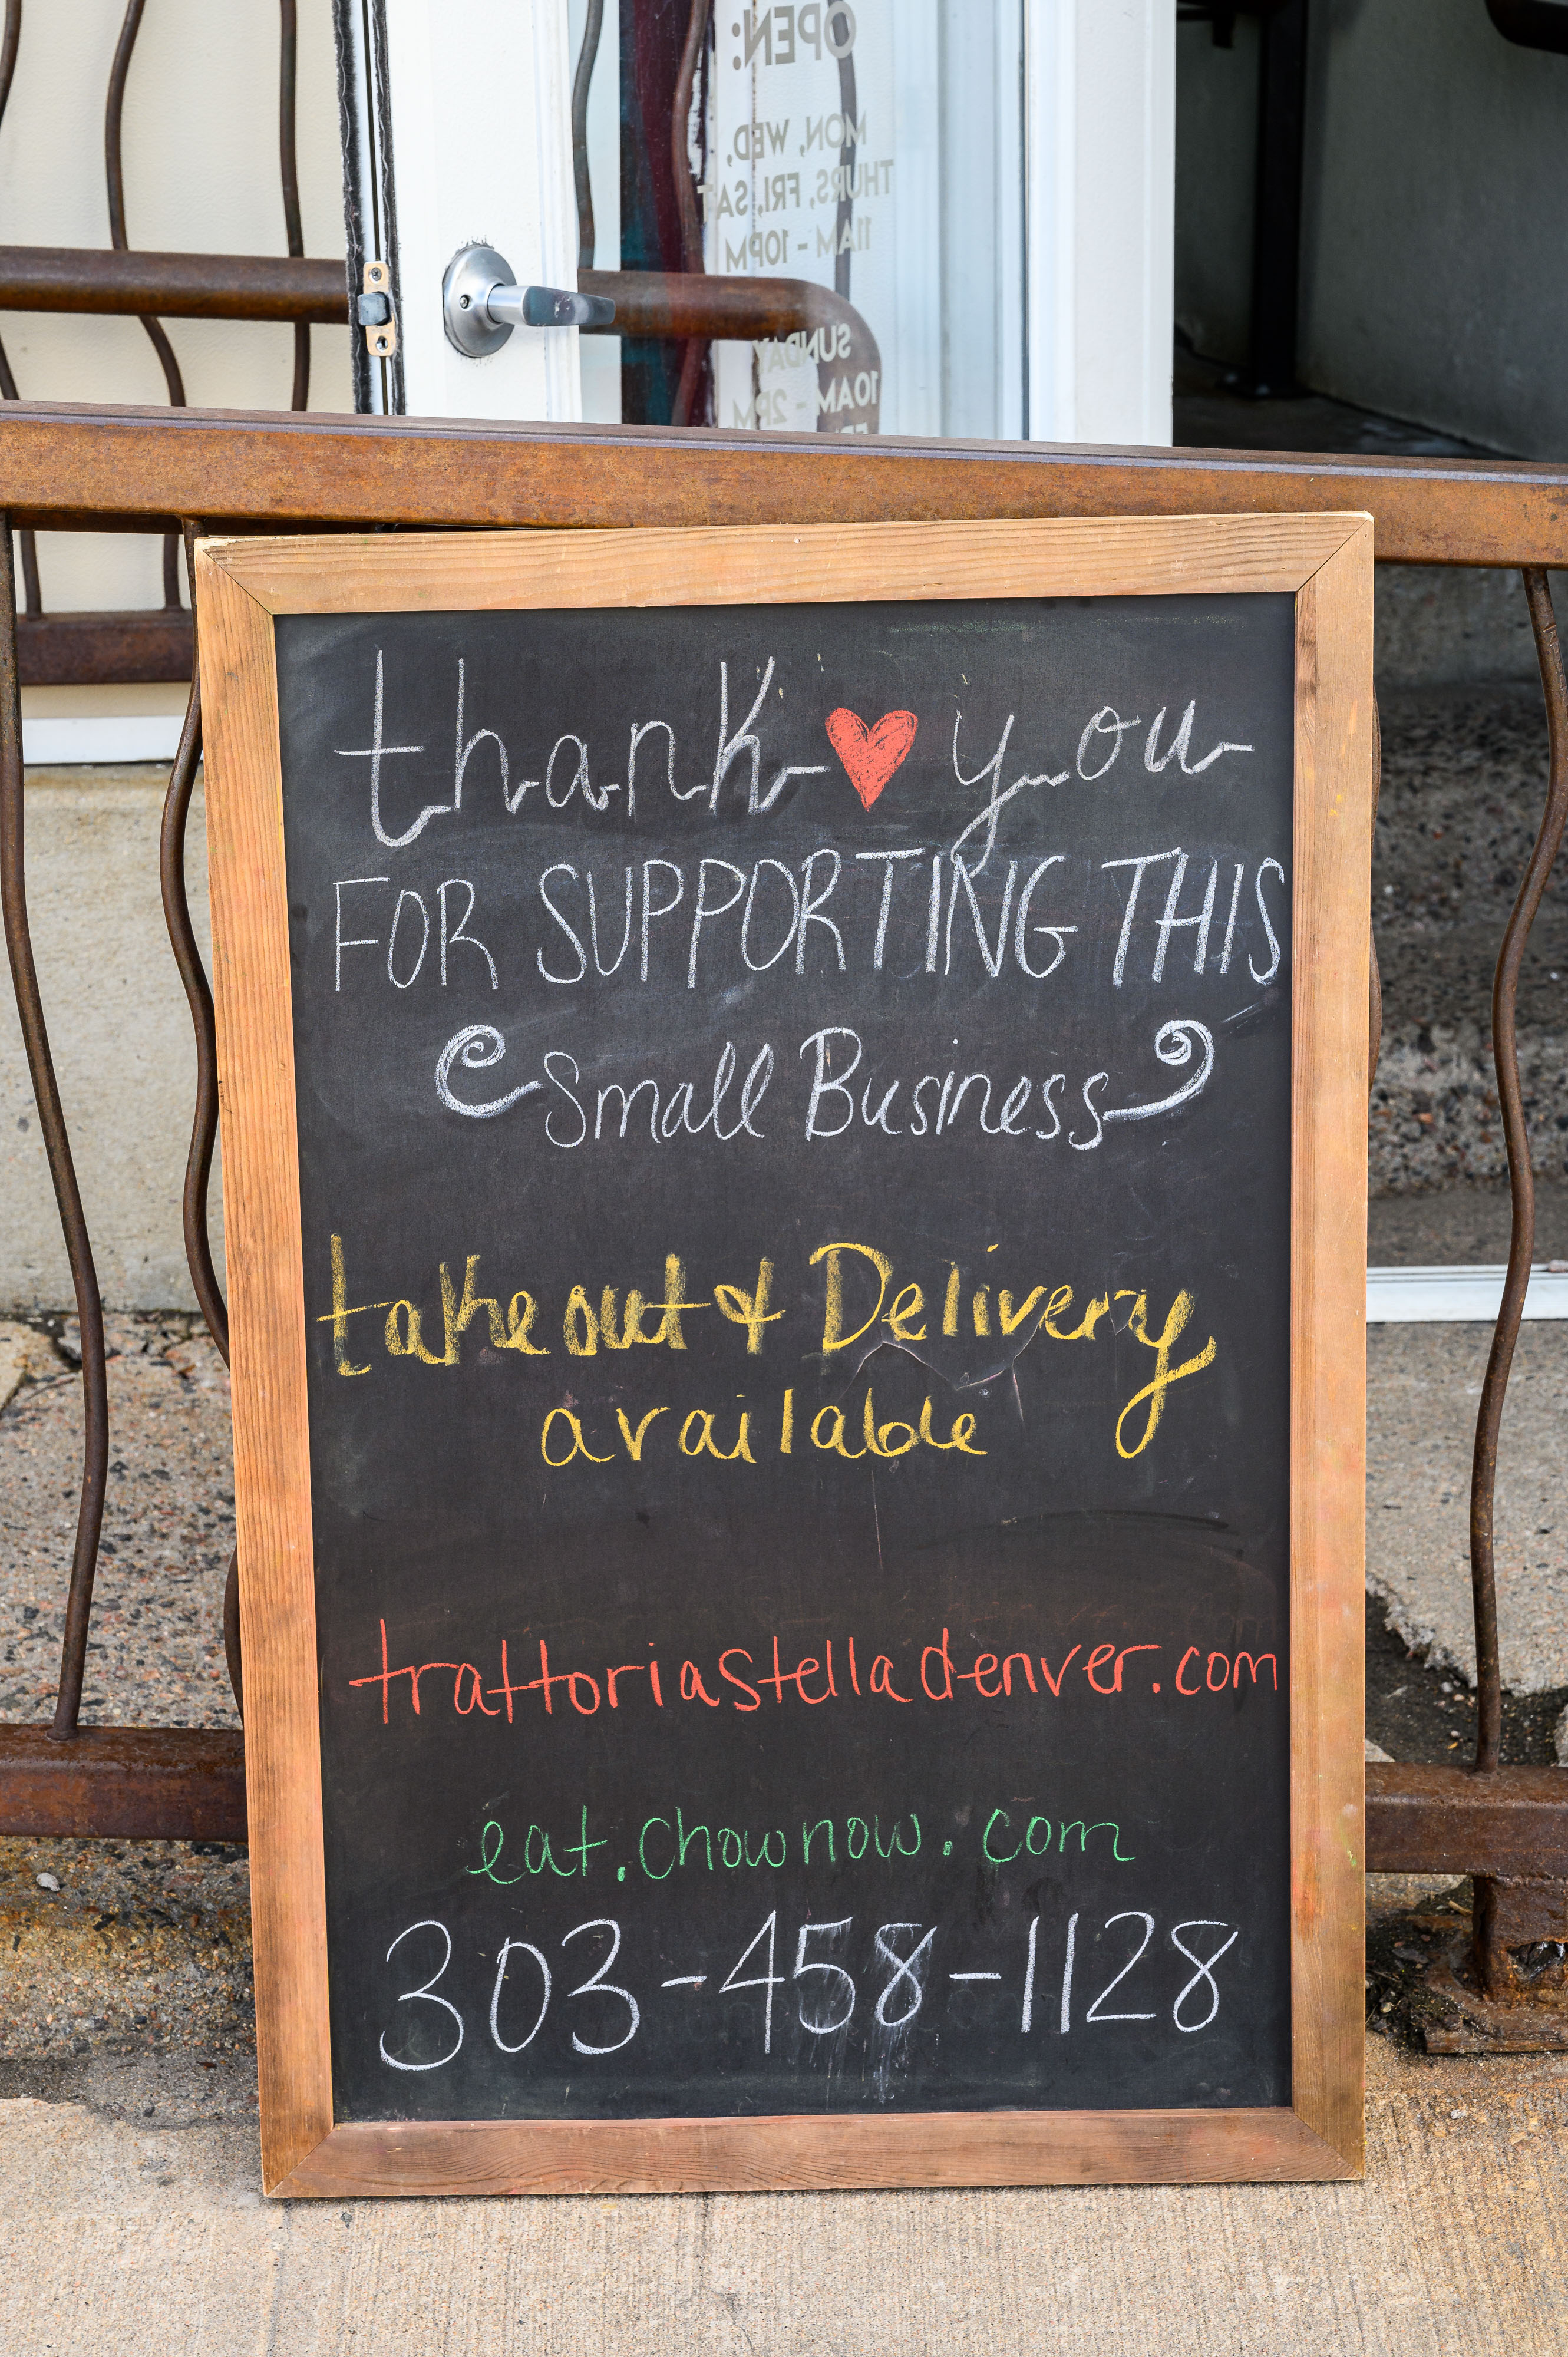 OPEN:
MON, WED,
THURS, FRI, SAT
11AM - 10PM
SUNDAY
10AM - 2PM
thank you
FOR SUPPORTING THIS
Small Business
takeout & Delivery
available
trattoriastelladenver.com
eat.chownow.com
303-458-1128